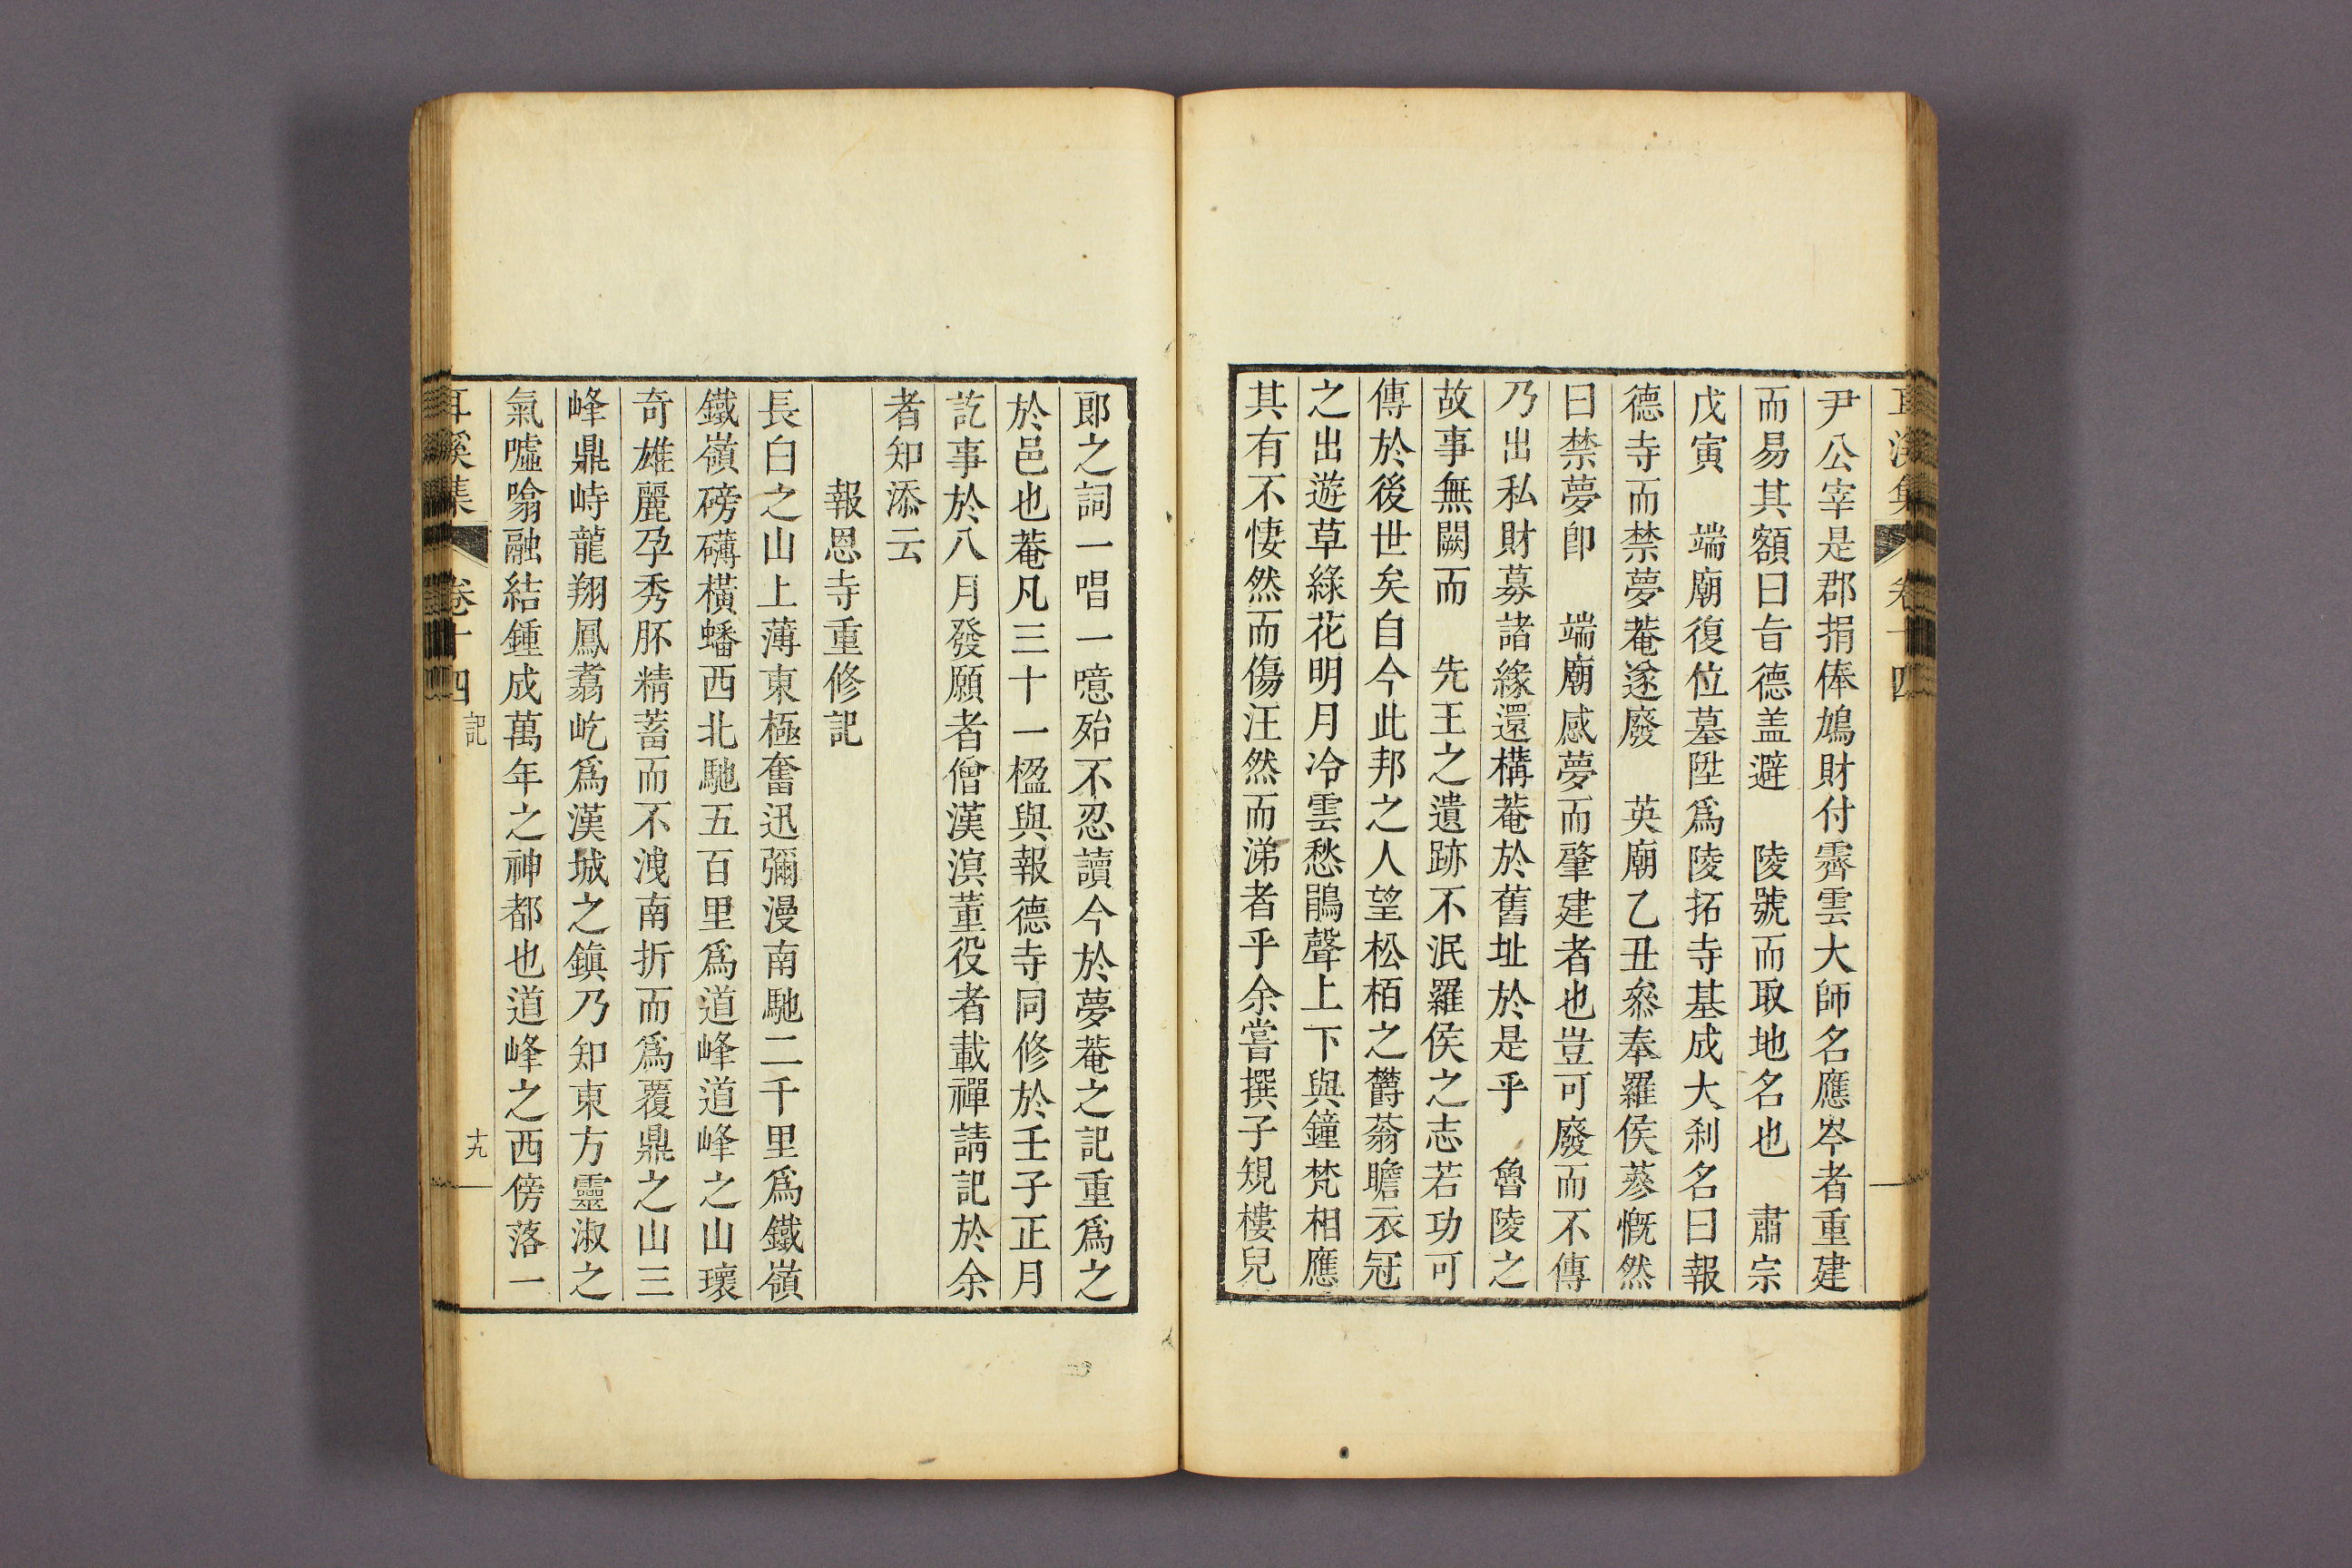 耳溪集 卷十四
尹公宰是郡捐俸鳩財付霽雲大師名應岑者重建
而易其額曰旨德盖避 陵號而取地名也 肅宗
戊寅 端廟復位墓陞爲陵拓寺基成大刹名曰報
德寺而禁夢菴遂廢 英廟乙丑叅奉羅侯蔘慨然
曰禁夢卽 端廟感夢而肇建者也豈可廢而不傳
乃出私財募諸緣還構菴於舊址於是乎 魯陵之
故事無闕而 先王之遺跡不泯羅侯之志若功可
傳於後世矣自今此邦之人望松栢之欝蓊瞻衣冠
之出遊草綠花明月冷雲愁鵑聲上下與鐘梵相應
其有不悽然而傷汪然而涕者乎余嘗撰子規樓兒
郞之詞一唱一噫殆不忍讀今於夢菴之記重爲之
於邑也菴凡三十一楹與報德寺同修於壬子正月
訖事於八月發願者僧漢溟董役者載禪請記於余
者知添云
報恩寺重修記
長白之山上薄東極奮迅彌漫南馳二千里爲鐵嶺
鐵嶺磅礴橫蟠西北馳五百里爲道峰道峰之山瓌
奇雄麗孕秀胚精蓄而不洩南折而爲覆鼎之山三
峰鼎峙龍翔鳳翥屹爲漢城之鎭乃知東方靈淑之
氣噓噏融結鍾成萬年之神都也道峰之西傍落一
耳溪集 卷十四 記 十九